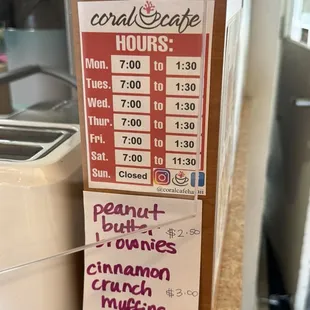 coral cafe
HOURS:
Mon. 7:00 to 1:30
Tues. 7:00 to 1:30
Wed. 7:00 to 1:30
Thur. 7:00 to 1:30
Fri. 7:00 to 1:30
Sat. 7:00 to 11:30
Sun. Closed
peanut
butter $2.50
brownies
cinnamon
crunch $3.00
muffins